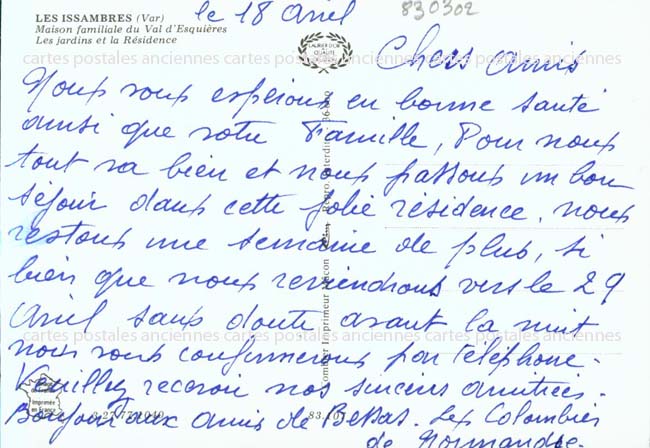 LES ISSAMBRES (Var)
Maison familiale du Val d'Esquières
Les jardins et la Résidence
le 18 Avril
830302
LAURIER D'OR
QUALITÉ
Chers amis
cartes postales anciennes cartes postales anciennes cartes postales anciennes
Nous vous espérons en bonne santé
ainsi que votre Famille, Pour nous
tout va bien et nous passons un bon
séjour dans cette jolie résidence. nous
restons une semaine de plus, si
bien que nous reviendrons vers le 29
Avril sans doute avant la nuit
cartes postales anciennes cartes postales anciennes cartes postales anciennes
nous vous confirmerons par téléphone.
Veuillez recevoir nos sincères amitiées.
Bonjour aux amis de Bessas. Les Colombiers
de Normandie.
Imprimeur
Repro. Interdite
Imprimée
en France
83.107